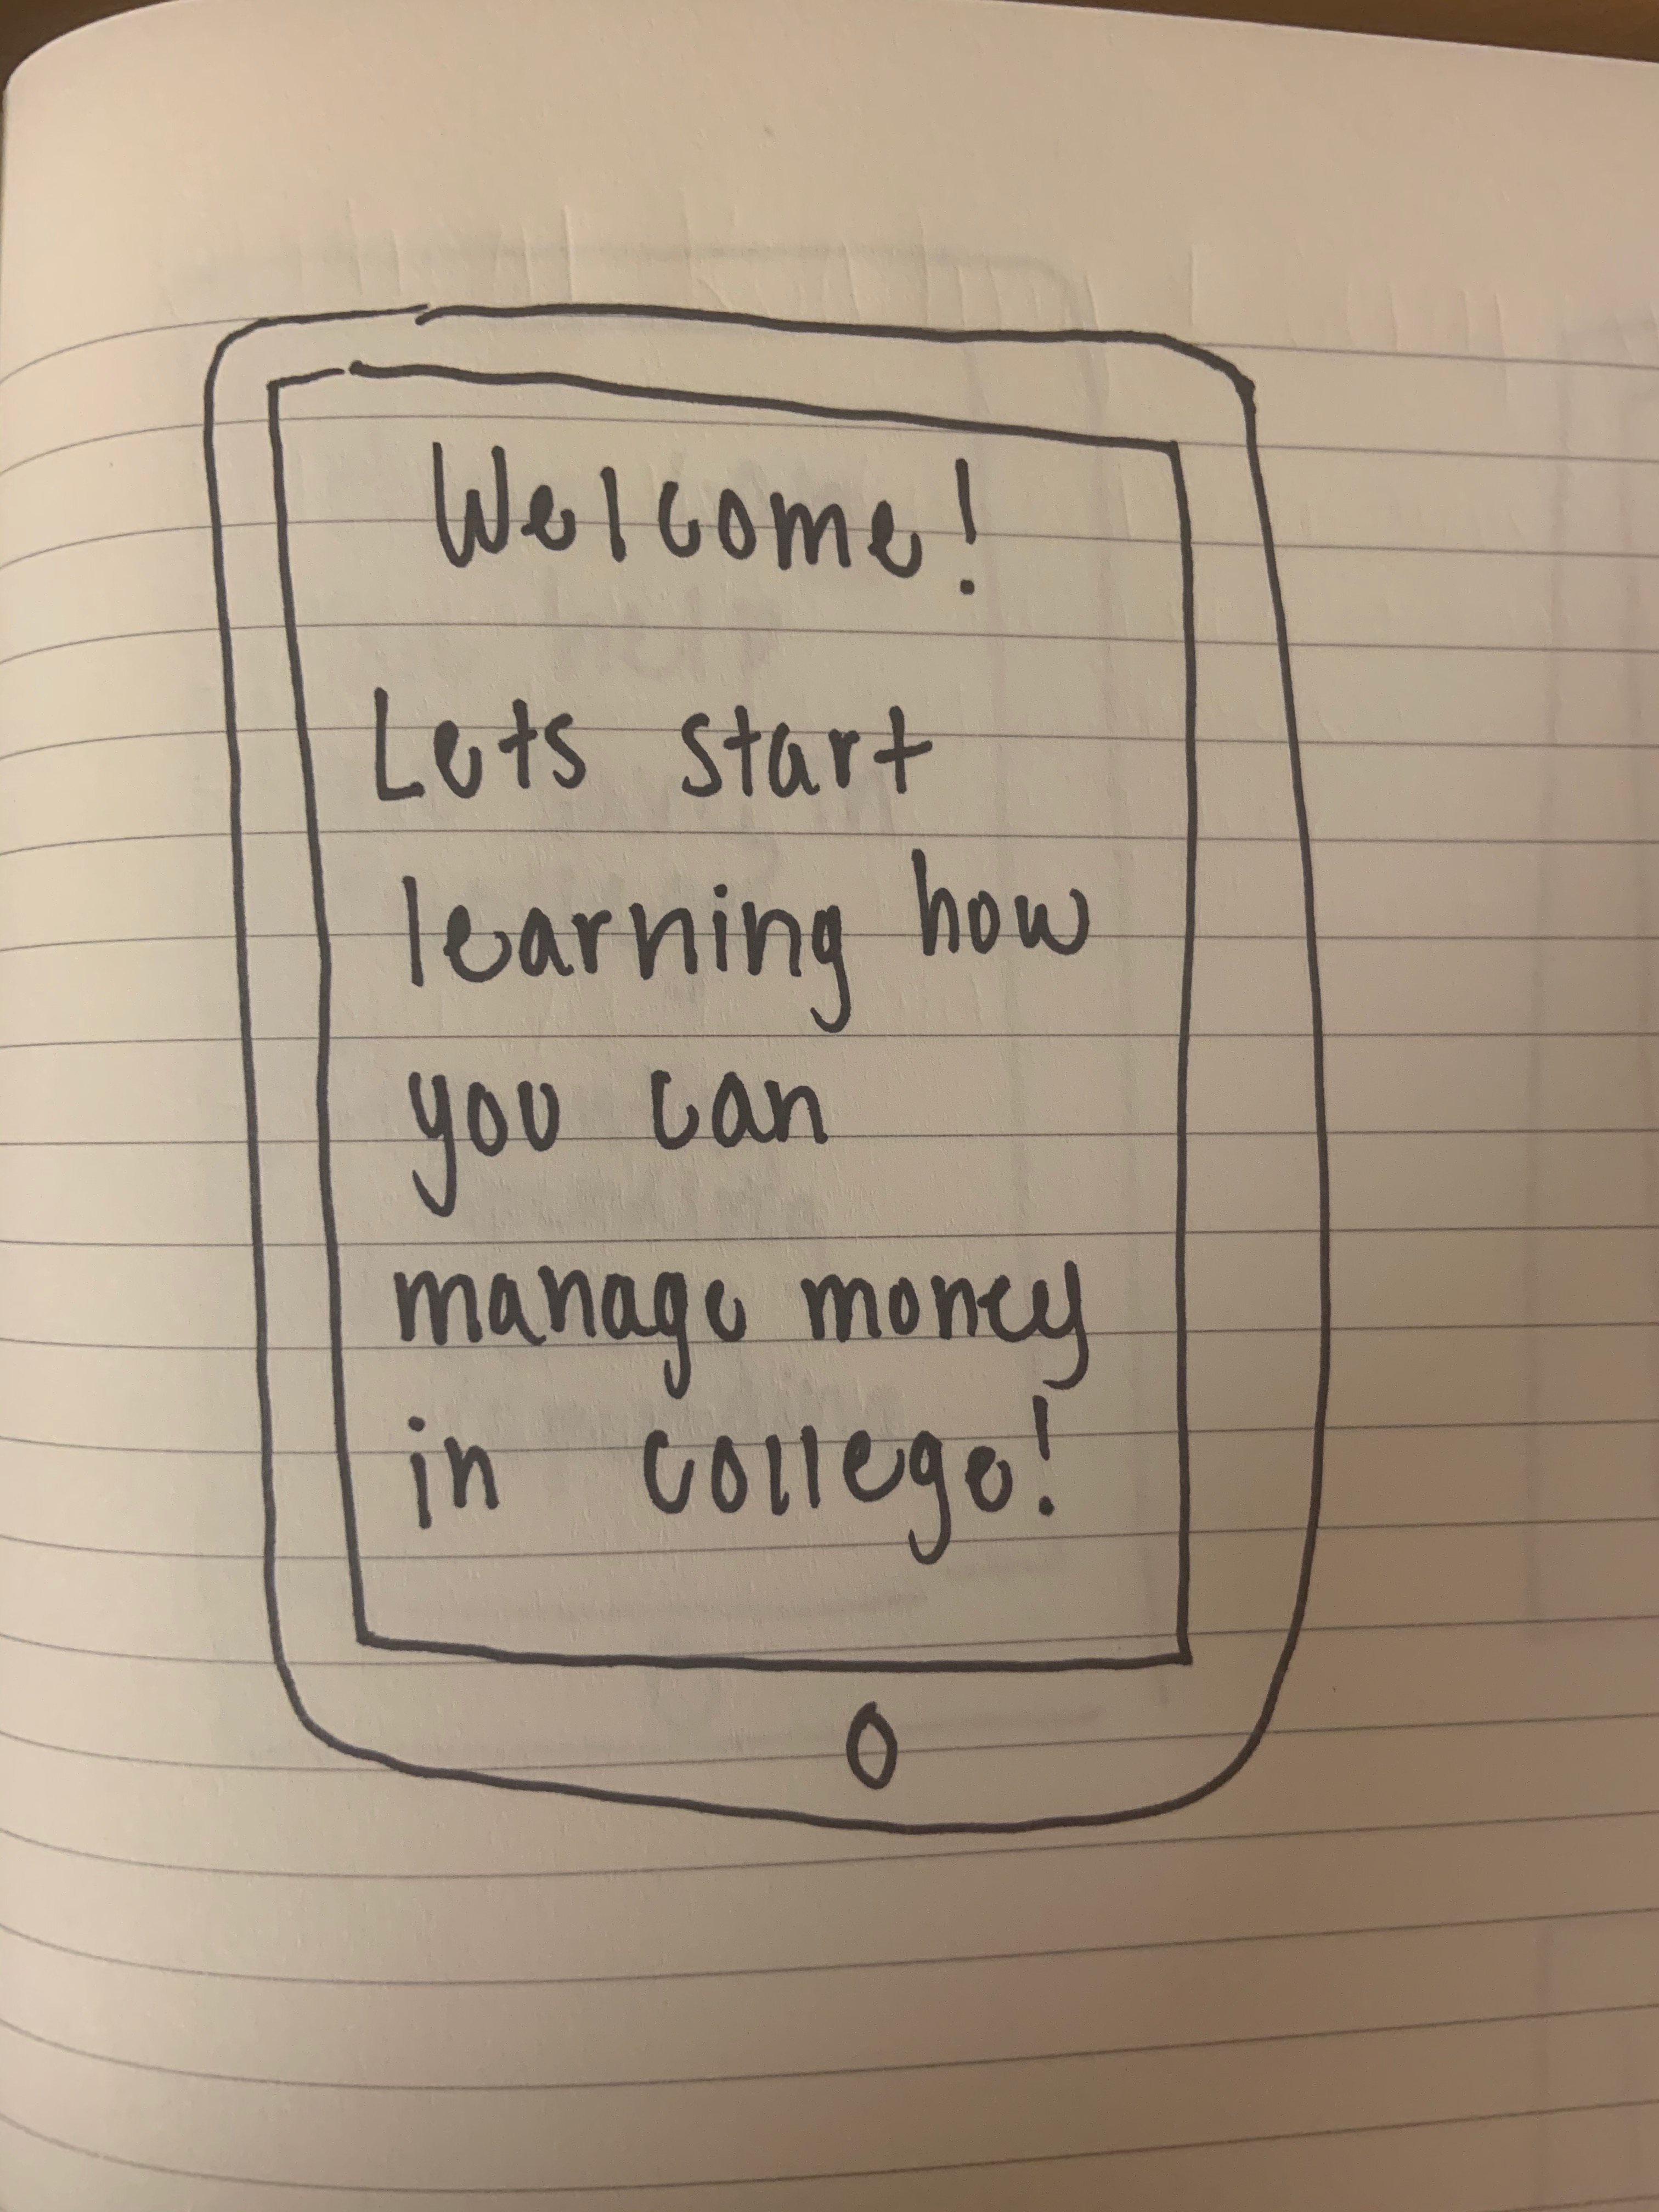 Welcome!
Lets start
learning how
you can
manage money
in college!